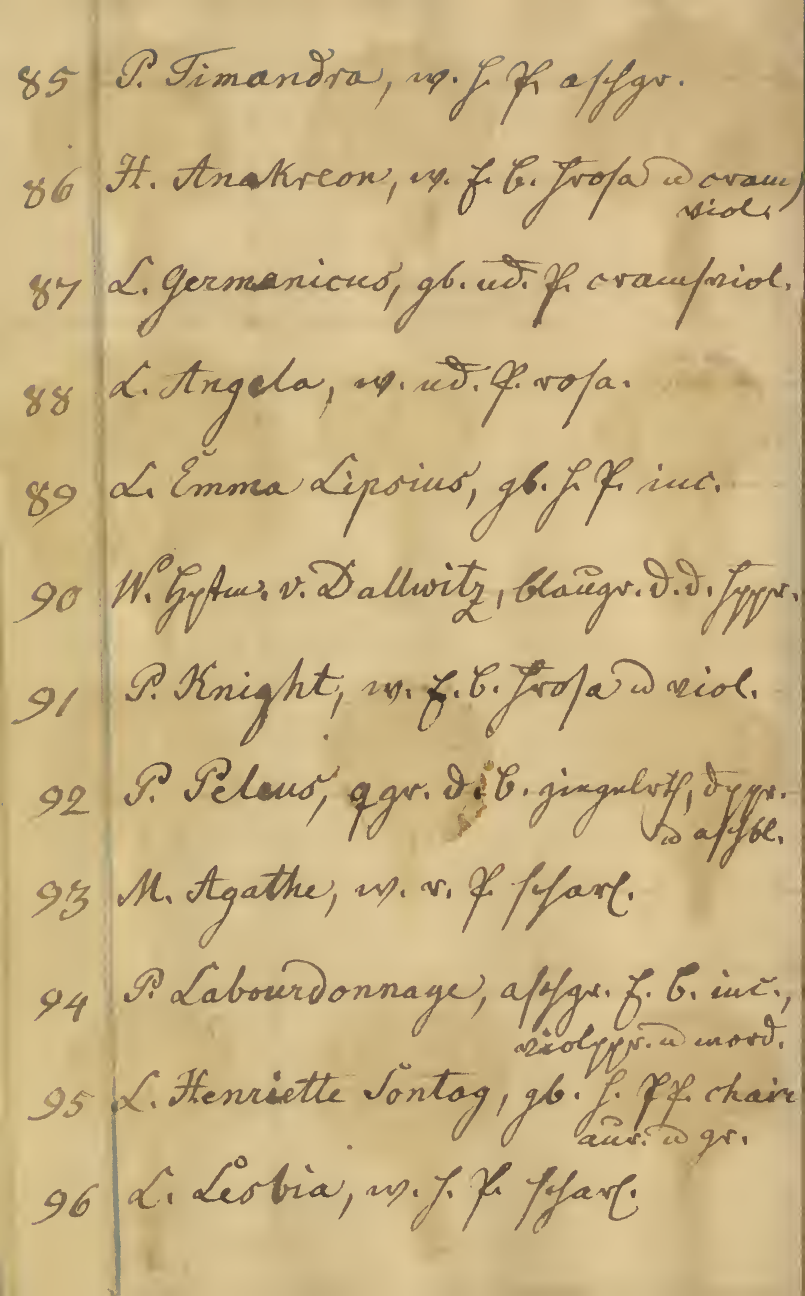 85 P. Timandra, w. h. P. aschgr.
86 H. Anakreon, w. f. b. hrosa u cram
viol.
87 L. Germanicus, gb. ud. P. cramviol.
88 L. Angela, w. ud. P. rosa.
89 L. Emma Lipsius, gb. h. P. inc.
90 W. Hptm. v. Dallwitz, blaugr. d. d. hppr.
91 P. Knight, w. f. b. hrosa u viol.
92 P. Peleus, ggr. d. b. ziegelrth, dppr.
u aschbl.
93 M. Agathe, w. r. P. scharl.
94 P. Labourdonnage, aschgr. f. b. inc.,
violppr. u mord.
95 L. Henriette Sontag, gb. h. Pf. chair
aur. u gr.
96 L. Lesbia, w. h. P. scharl.